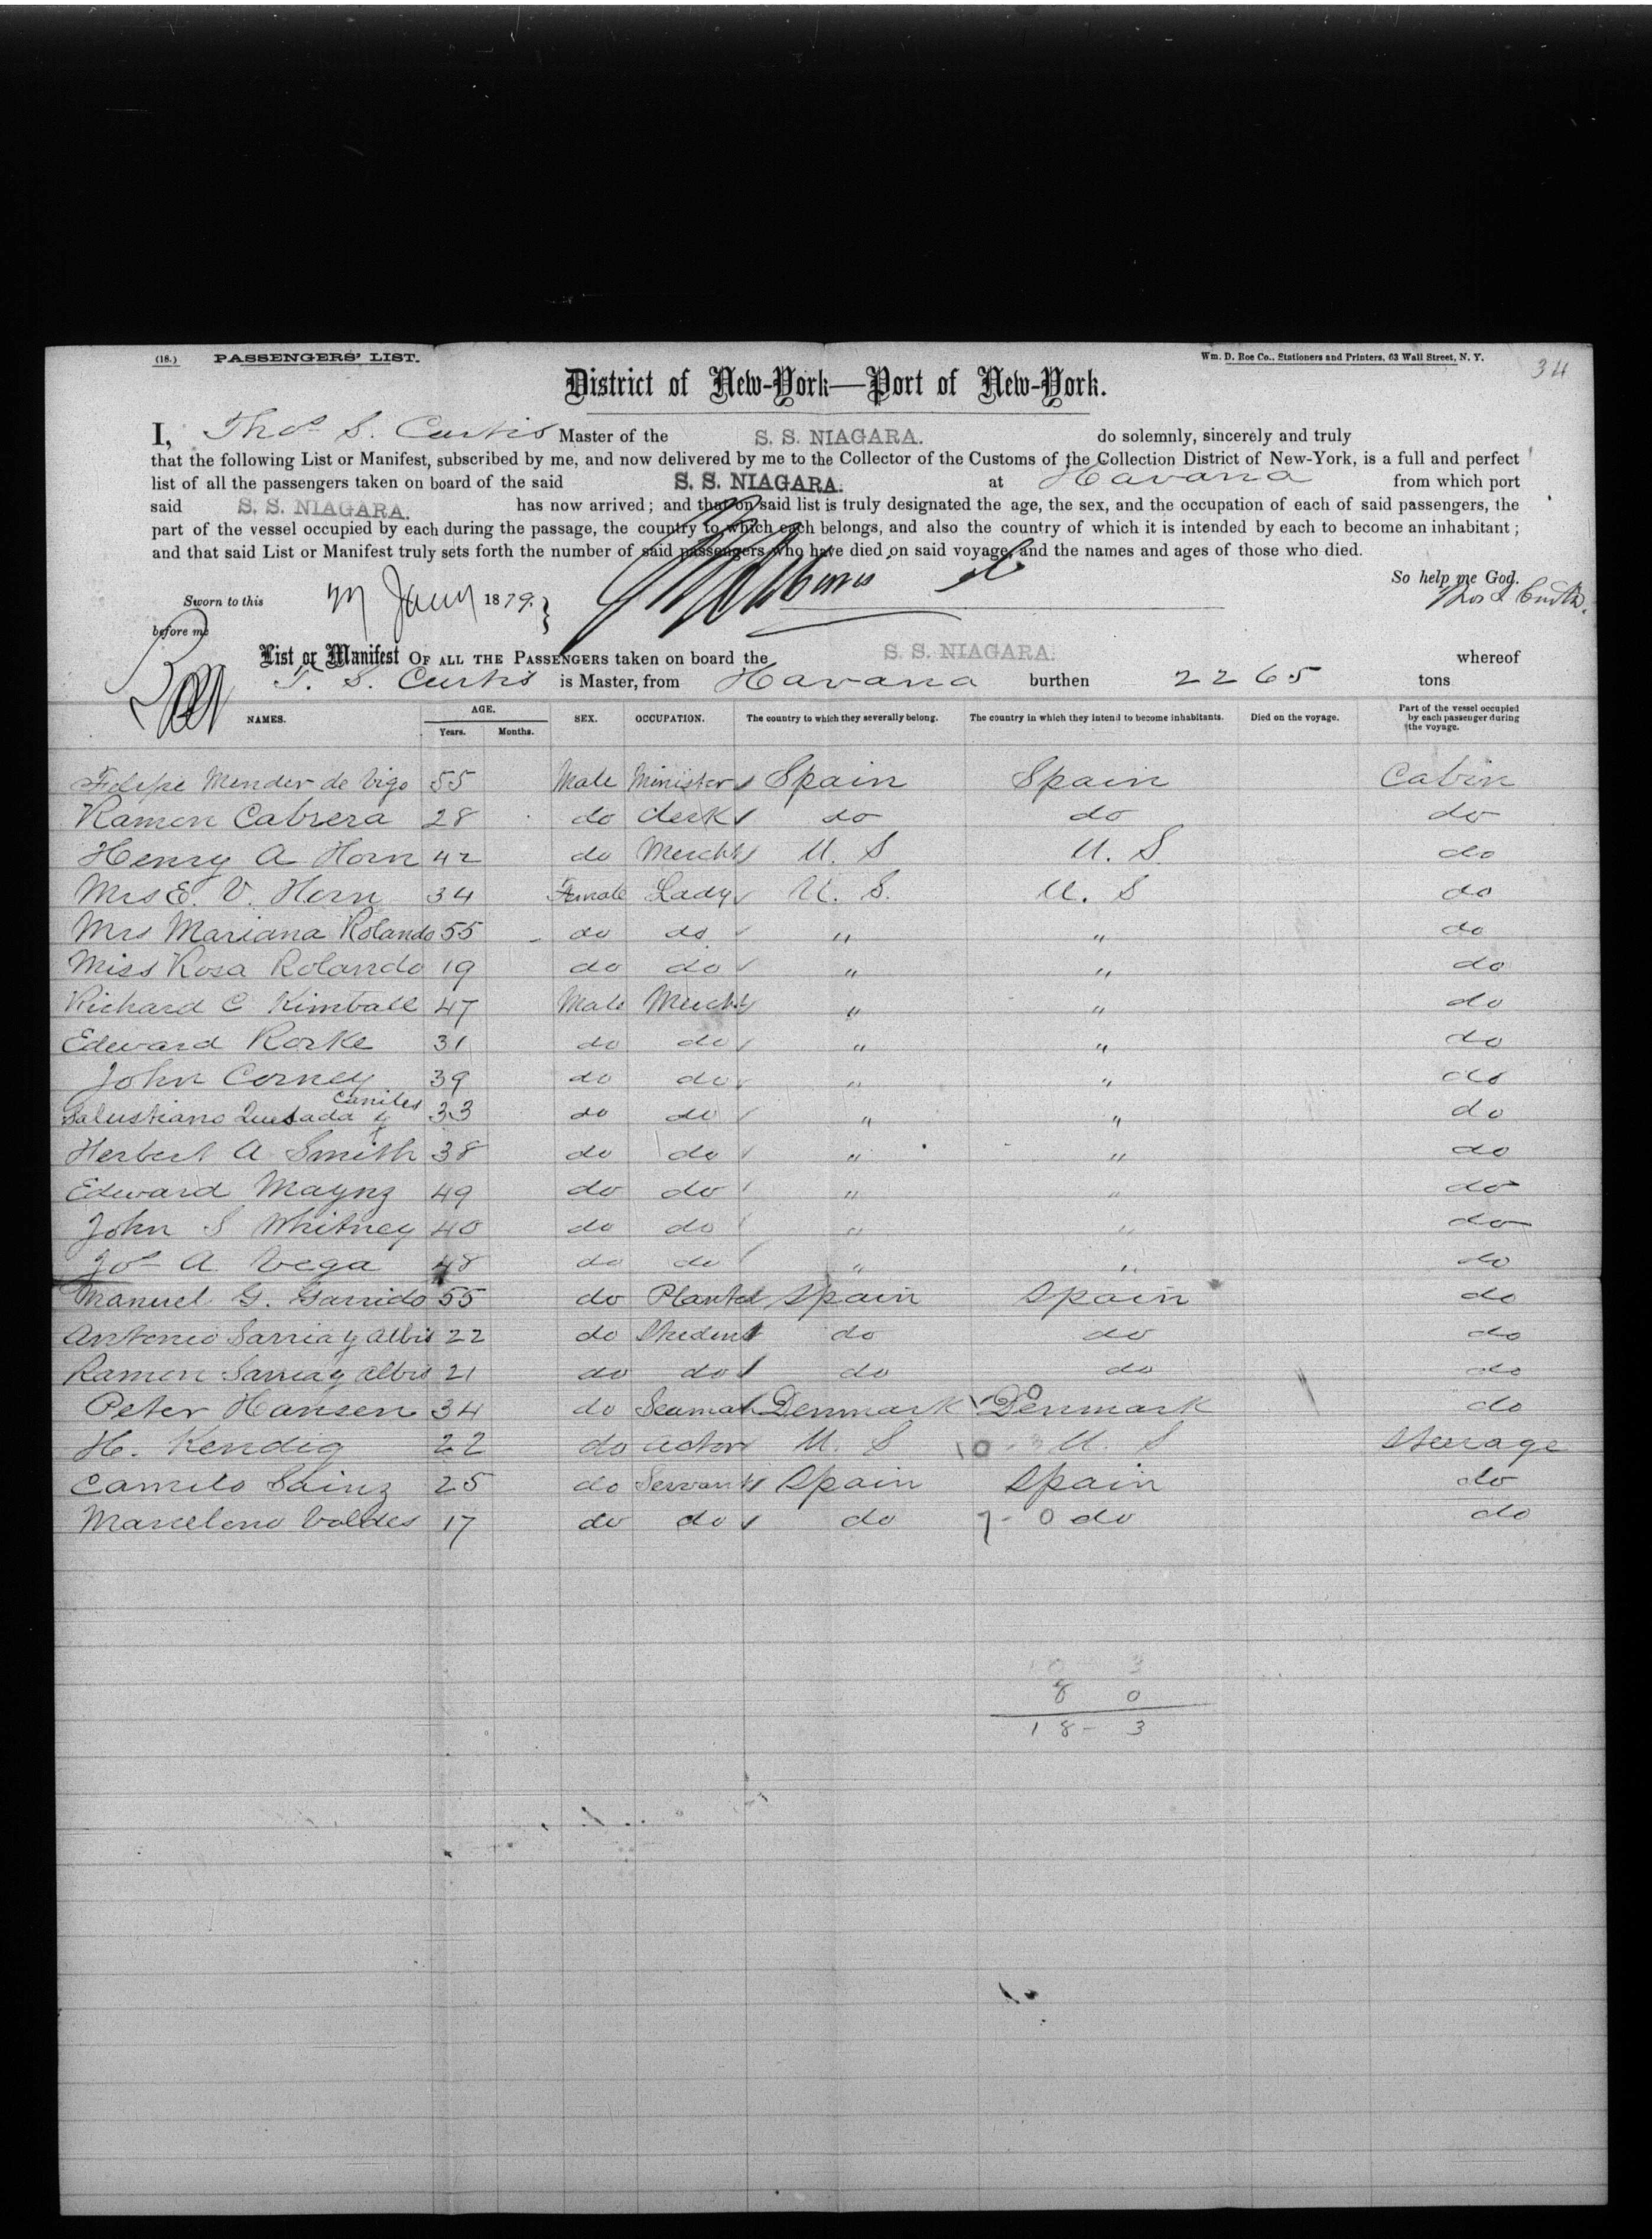 (18.) PASSENGERS' LIST. Wm. D. Roe Co., Stationers and Printers, 63 Wall Street, N. Y. 34
District of New-York—Port of New-York.
I, Thos S. Curtis Master of the S. S. NIAGARA. do solemnly, sincerely and truly
that the following List or Manifest, subscribed by me, and now delivered by me to the Collector of the Customs of the Collection District of New-York, is a full and perfect
list of all the passengers taken on board of the said S. S. NIAGARA. at Havana from which port
said S. S. NIAGARA. has now arrived; and that on said list is truly designated the age, the sex, and the occupation of each of said passengers, the
part of the vessel occupied by each during the passage, the country to which each belongs, and also the country of which it is intended by each to become an inhabitant;
and that said List or Manifest truly sets forth the number of said passengers who have died on said voyage, and the names and ages of those who died.
So help me God.
Sworn to this Jany 1879. Thos S Curtis.
before me
List or Manifest OF ALL THE PASSENGERS taken on board the S. S. NIAGARA. whereof
T. S. Curtis is Master, from Havana burthen 2265 tons
NAMES. AGE. Years. Months. SEX. OCCUPATION. The country to which they severally belong. The country in which they intend to become inhabitants. Died on the voyage. Part of the vessel occupied by each passenger during the voyage.
Felipe Mender de Vigo 55 Male Minister Spain Spain Cabin
Ramon Cabrera 28 do Clerk do do do
Henry A Horn 42 do Mercht U. S U. S do
Mrs E. V. Horn 34 Female Lady U. S. U. S do
Mrs Mariana Rolando 55 do do " " do
Miss Rosa Rolando 19 do do " " do
Richard C Kimball 47 Male Mercht " " do
Edward Rorke 31 do do " " do
John Corney 39 do do " " do
Salustiano Quesada y Caniles 33 do do " " do
Herbert A Smith 38 do do " " do
Edward Maynz 49 do do " " do
John S Whitney 40 do do " " do
Jos A Vega 48 do do " " do
Manuel G. Garrido 55 do Planter Spain Spain do
Antonio Sarria y Albis 22 do Student do do do
Ramon Sarria y Albis 21 do do do do do
Peter Hansen 34 do Seaman Denmark 1 0 Denmark do
H. Kendig 22 do Actor U. S 10 3 U. S Steerage
Camilo Sainz 25 do Servant Spain Spain do
Marcelono Valdes 17 do do do 7-0 do do
10 3
8 0
18- 3